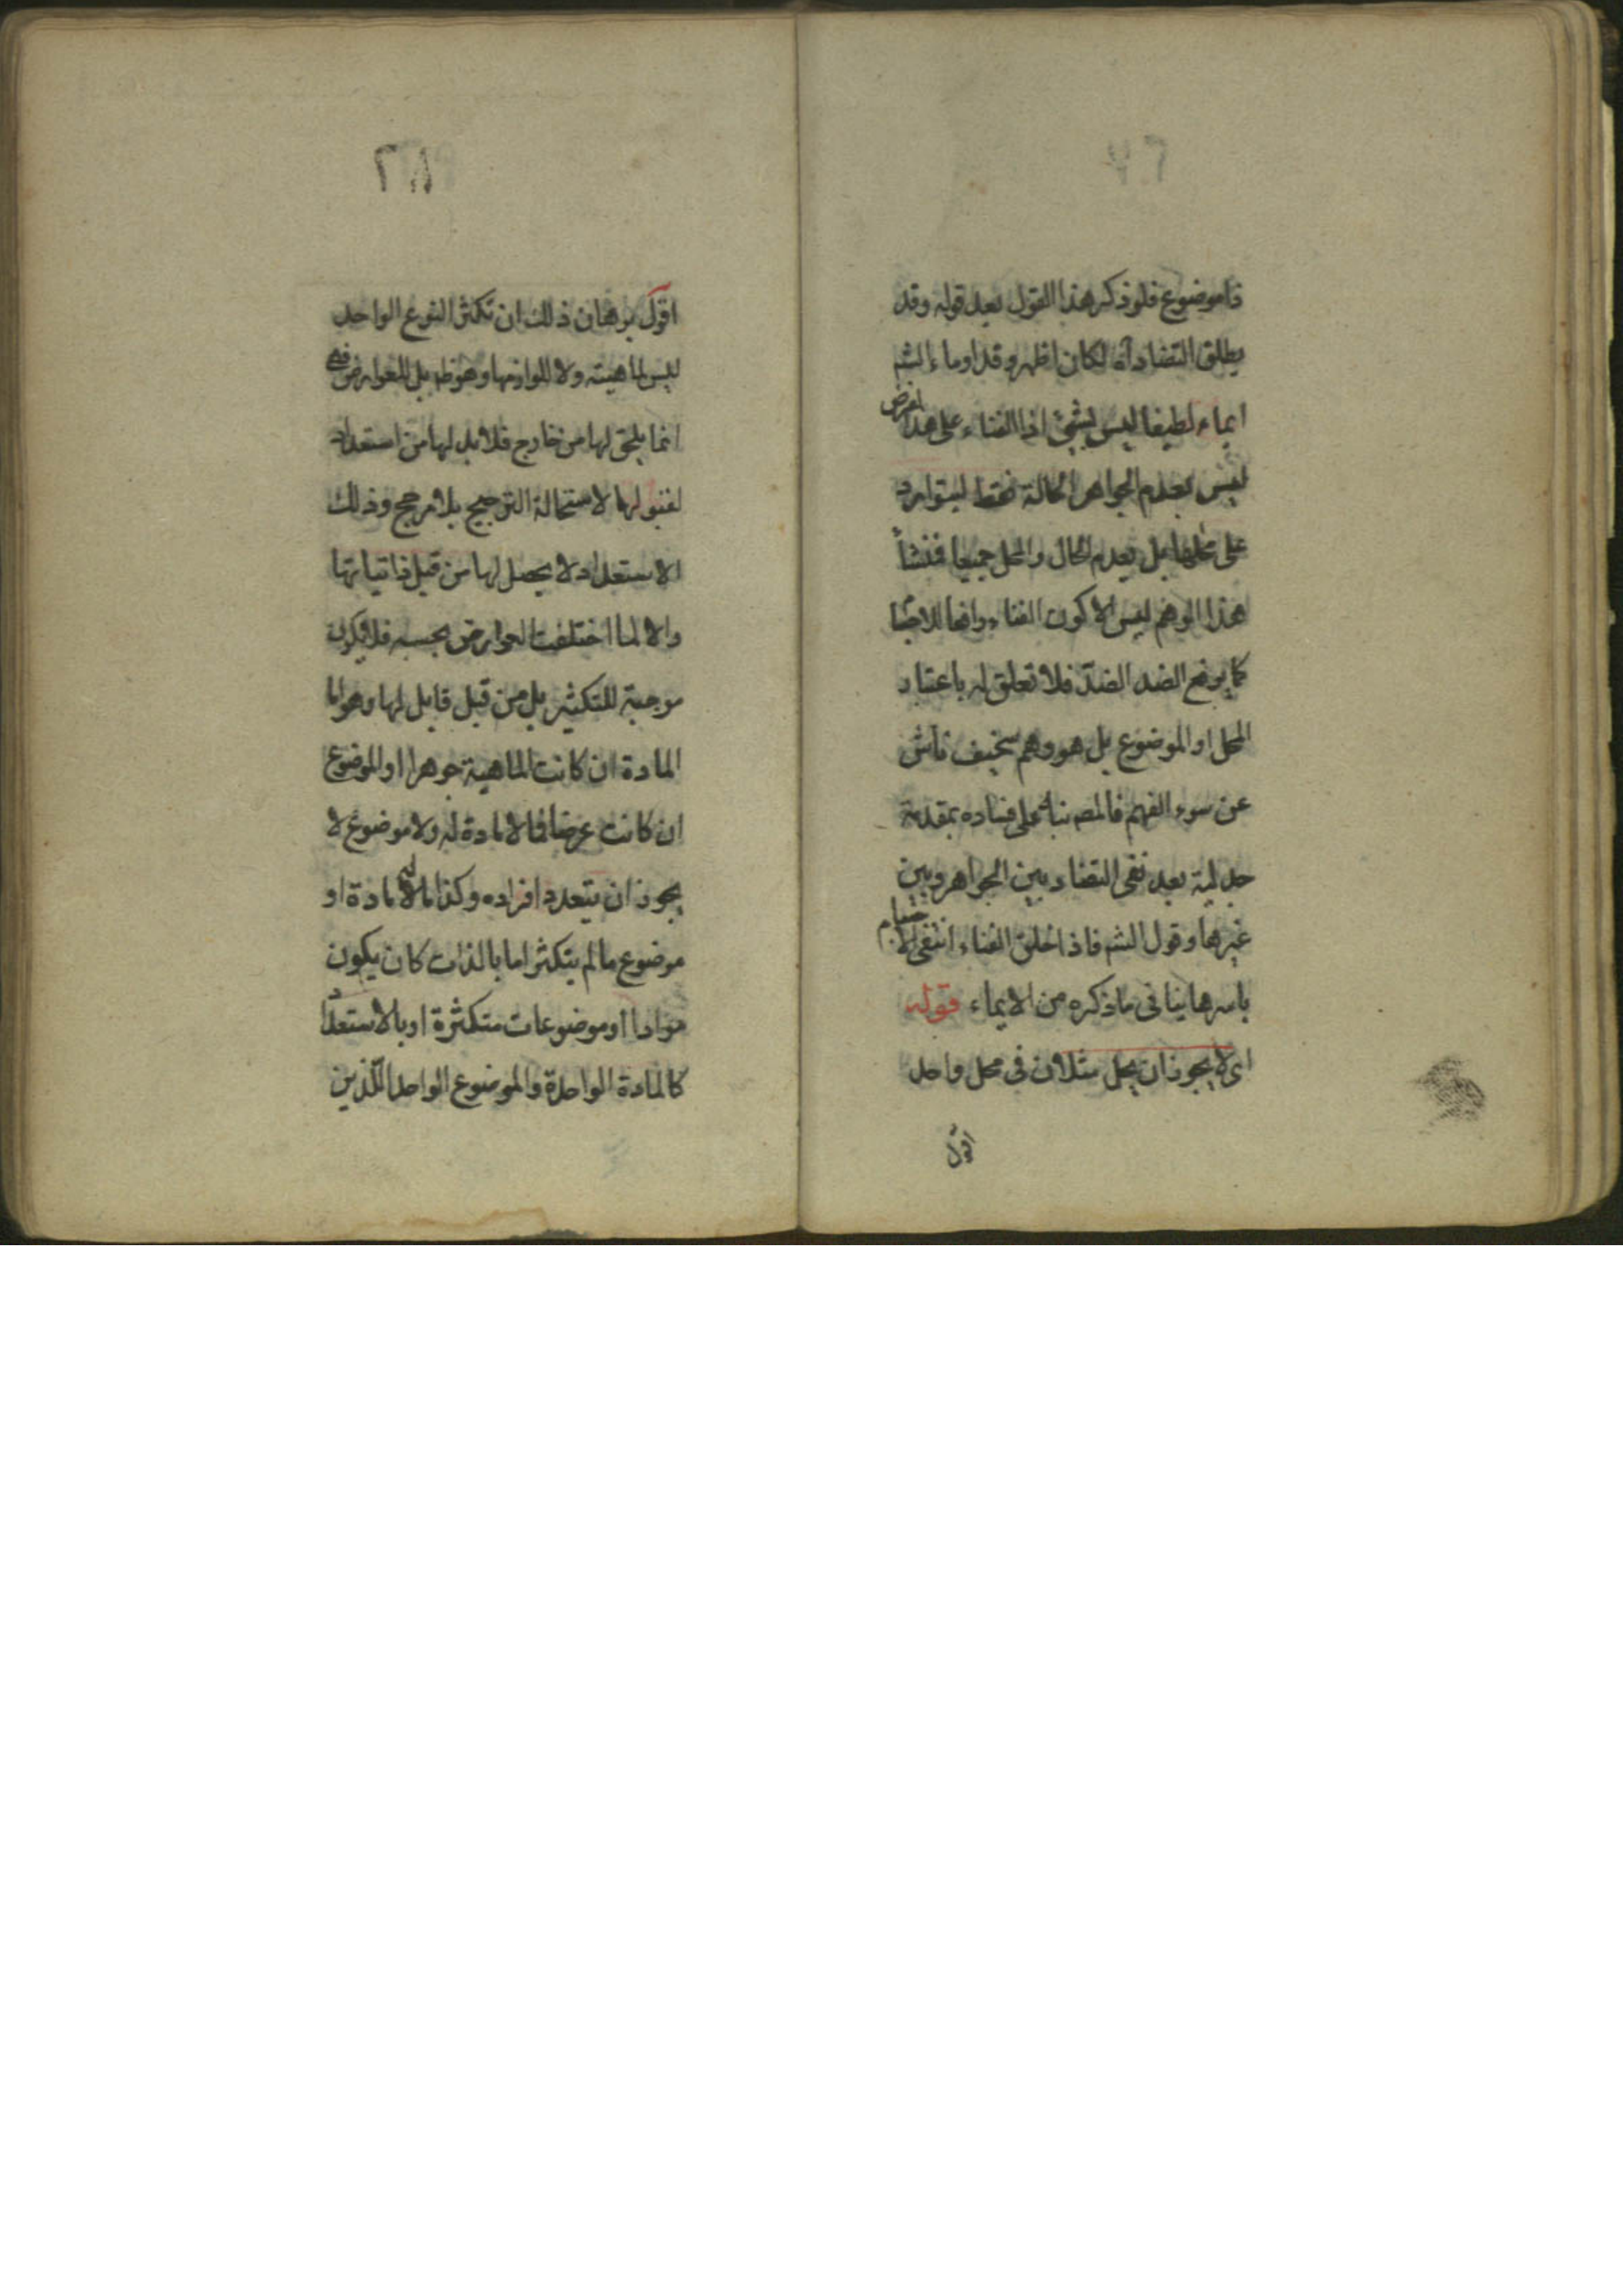 ذا موضوع فلو ذكر هذا القول بعد قوله وقد
يطلق التضاد آه لكان اظهر وقد اوماء الشم
ايماء لطيفا ليس بشئ اذ الفناء على هذا الفرض
ليس بعدم الجواهر الحالة فقط ليتوارد
على محلها بل يعدم الحال والمحل جميعا فمنشأ
هذا الوهم ليس الا كون الفناء رافعا للاجسام
كما يرفع الضد الضد فلا تعلق له باعتبار
المحل او الموضوع بل هو وهم سخيف ناش
عن سوء الفهم فالمصـ نبه على فساده بمقدمة
جدلية بعد نفى التضاد بين الجواهر وبين
غيرها وقول الشم فاذا خلق الفناء انتفى الاجسام
باسرها ينافى ما ذكره من الايماء قوله
اى لا يجوز ان يحل مثلان فى محل واحد
اقول
٢٨
اقول برهان ذلك ان تكثر النوع الواحد
ليس لماهيته ولا للوازمها وهو ظ بل للعوارض فهى
انما يلحق لها من خارج فلا بد لها من استعداد
لقبولها لاستحالة الترجيح بلا مرجح وذلك
الاستعداد لا يحصل لها من قبل ذاتياتها
والا لما اختلفت العوارض بحسبه فلا يكون
موجبة للتكثير بل من قبل قابل لها وهو اما
المادة ان كانت الماهية جوهرا او الموضوع
ان كانت عرضا فما لا مادة له ولا موضوع لا
يجوز ان يتعدد افراده وكذا ما له مادة او
موضوع ما لم يتكثر اما بالذات كان يكون
موادا او موضوعات متكثرة او بالاستعداد
كالمادة الواحدة والموضوع الواحد اللذين